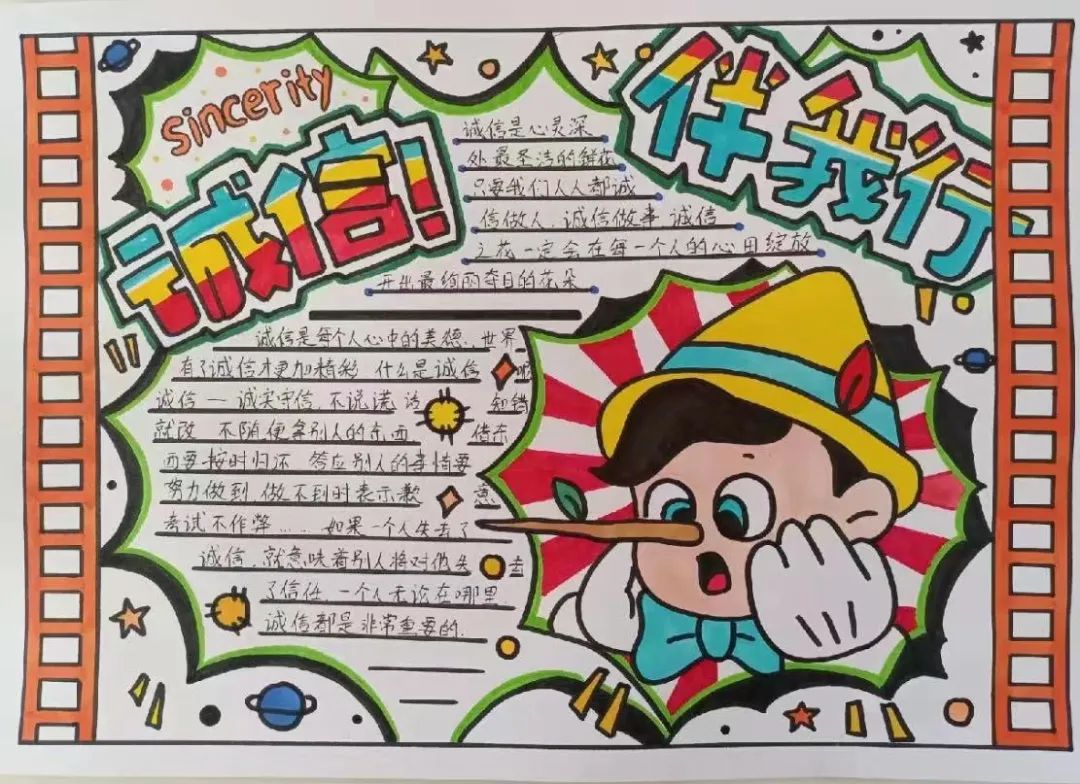 sincerity
诚信!
伴我行
诚信是心灵深
处最圣洁的鲜花
只要我们人人都诚
信做人、诚信做事 诚信
之花一定会在每一个人的心田绽放
开出最绚丽夺目的花朵
诚信是每个人心中的美德.,世界
有了诚信才更加精彩 什么是诚信 呢
诚信一诚实守信,不说谎 话 知错
就改 不随便拿别人的东西 借东
西要按时归还 答应别人的事情要
努力做到,做不到时表示歉 意
考试不作弊……如果一个人失去了
诚信,就意味着别人将对他失 去
了信任,一个人无论在哪里
诚信都是非常重要的.